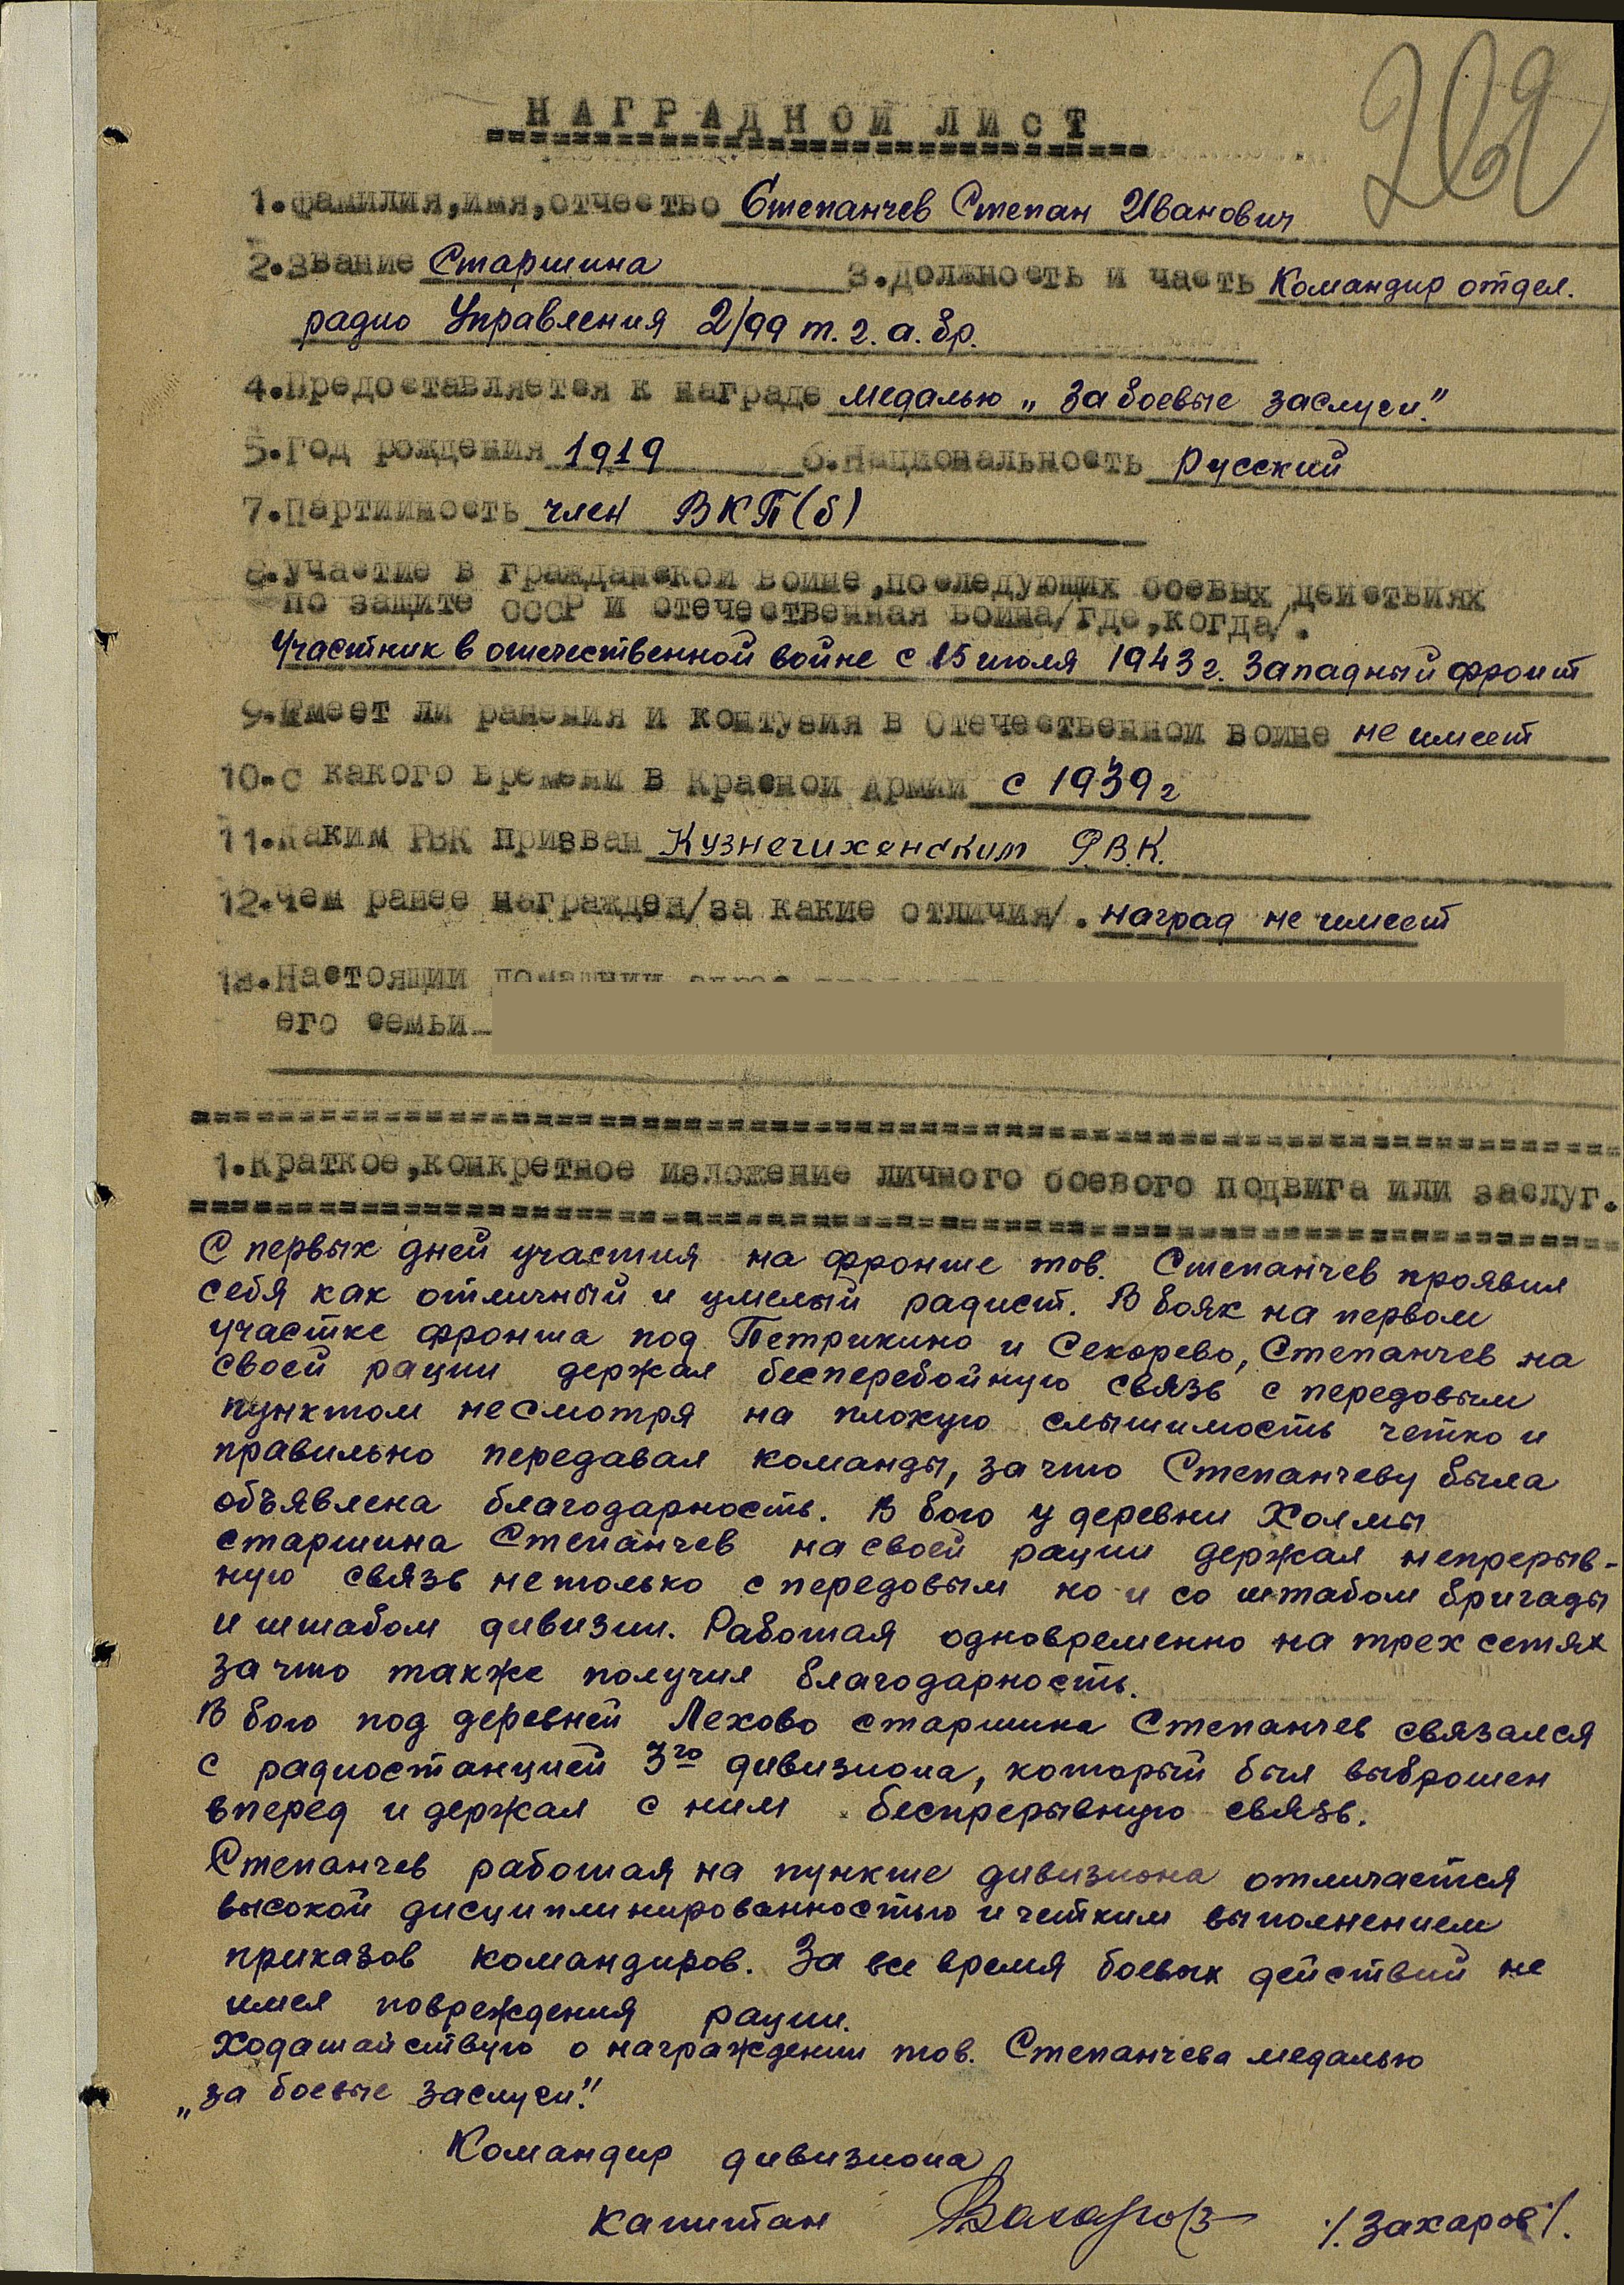 262
НАГРАДНОЙ ЛИСТ
1.Фамилия,имя,отчество Степанчев Степан Иванович
2.Звание Старшина 3.Должность и часть Командир отдел.
радио Управления 2/99 т.г.а.бр.
4.Предоставляется к награде медалью „За боевые заслуги."
5.Год рождения 1919 6.Национальность Русский
7.Партийность член ВКП(б)
8.Участие в гражданской войне,последующих боевых действиях
по защите СССР и отечественная война/где,когда/.
Участник в отечественной войне с 15 июля 1943 г. Западный фронт
9.Имеет ли ранения и контузия в Отечественной войне не имеет
10.С какого времени в Красной Армии с 1939 г
11.Каким РВК призван Кузнечихенским Р.В.К.
12.Чем ранее награжден/за какие отличия/. наград не имеет
13.Настоящий домашний адрес
его семьи
1.Краткое,конкретное изложение личного боевого подвига или заслуг.
С первых дней участия на фронте тов. Степанчев проявил
себя как отличный и умелый радист. В боях на первом
участке фронта под Петрикино и Секорево, Степанчев на
своей рации держал бесперебойную связь с передовым
пунктом несмотря на плохую слышимость четко и
правильно передавал команды, за что Степанчеву была
объявлена благодарность. В бою у деревни Холмы
старшина Степанчев на своей рации держал непрерыв-
ную связь не только с передовым но и со штабом бригады
и штабом дивизии. Работая одновременно на трех сетях
за что также получил благодарность.
В бою под деревней Лехово старшина Степанчев связался
с радиостанцией 3го дивизиона, который был выброшен
вперед и держал с ним беспрерывную связь.
Степанчев работая на пункте дивизиона отличается
высокой дисциплинированностью и четким выполнением
приказов командиров. За все время боевых действий не
имел повреждения рации.
Ходатайствую о награждении тов. Степанчева медалью
„за боевые заслуги."
Командир дивизиона
капитан Захаров /.Захаров/.